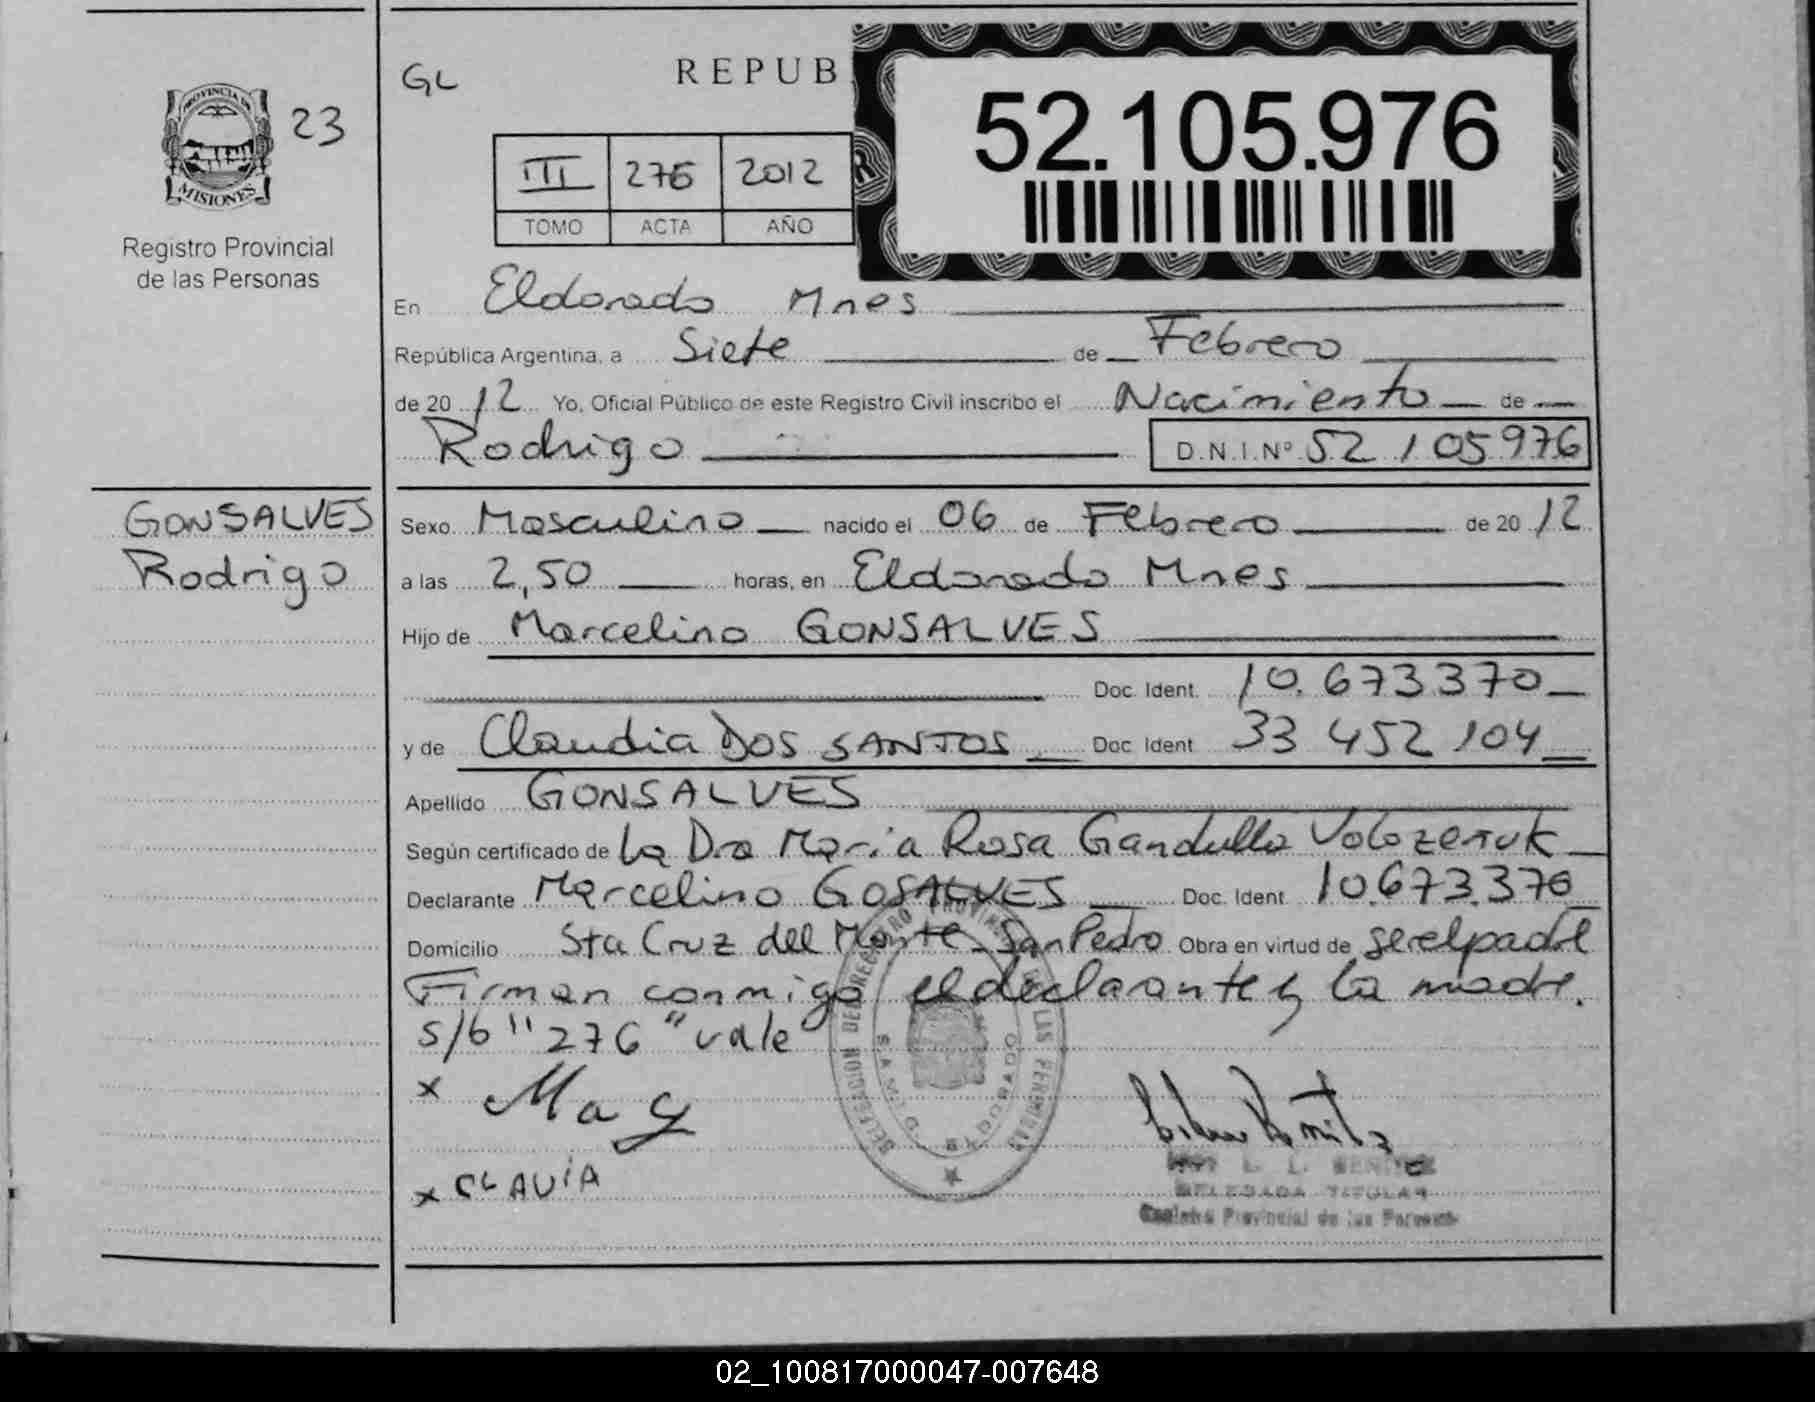 PROVINCIA DE
MISIONES
23
Registro Provincial
de las Personas
GL
REPUB
52.105.976
III 276 2012
TOMO ACTA AÑO
En Eldorado Mnes
República Argentina, a Siete de Febrero
de 2012 Yo, Oficial Público de este Registro Civil inscribo el Nacimiento de
Rodrigo D.N.I.Nº 52 105976
GONSALVES
Rodrigo
Sexo Masculino nacido el 06 de Febrero de 2012
a las 2,50 horas, en Eldorado Mnes
Hijo de Marcelino GONSALVES
Doc. Ident. 10.673370
y de Claudia DOS SANTOS Doc. Ident 33 452 104
Apellido GONSALVES
Según certificado de La Dra Maria Rosa Gandulla
Declarante Marcelino GOSALVES Doc. Ident 10.673.370
Domicilio Sta Cruz del Monte - San Pedro Obra en virtud de ser el padre
Firman conmigo el declarante y la madre.
s/b "276" vale
DELEGACION DEL REGISTRO PROVINCIAL DE LAS PERSONAS
ELDORADO
x
x CLAVIA
L. L. BENITEZ
DELEGADA TITULAR
Registro Provincial de las Personas
02_100817000047-007648